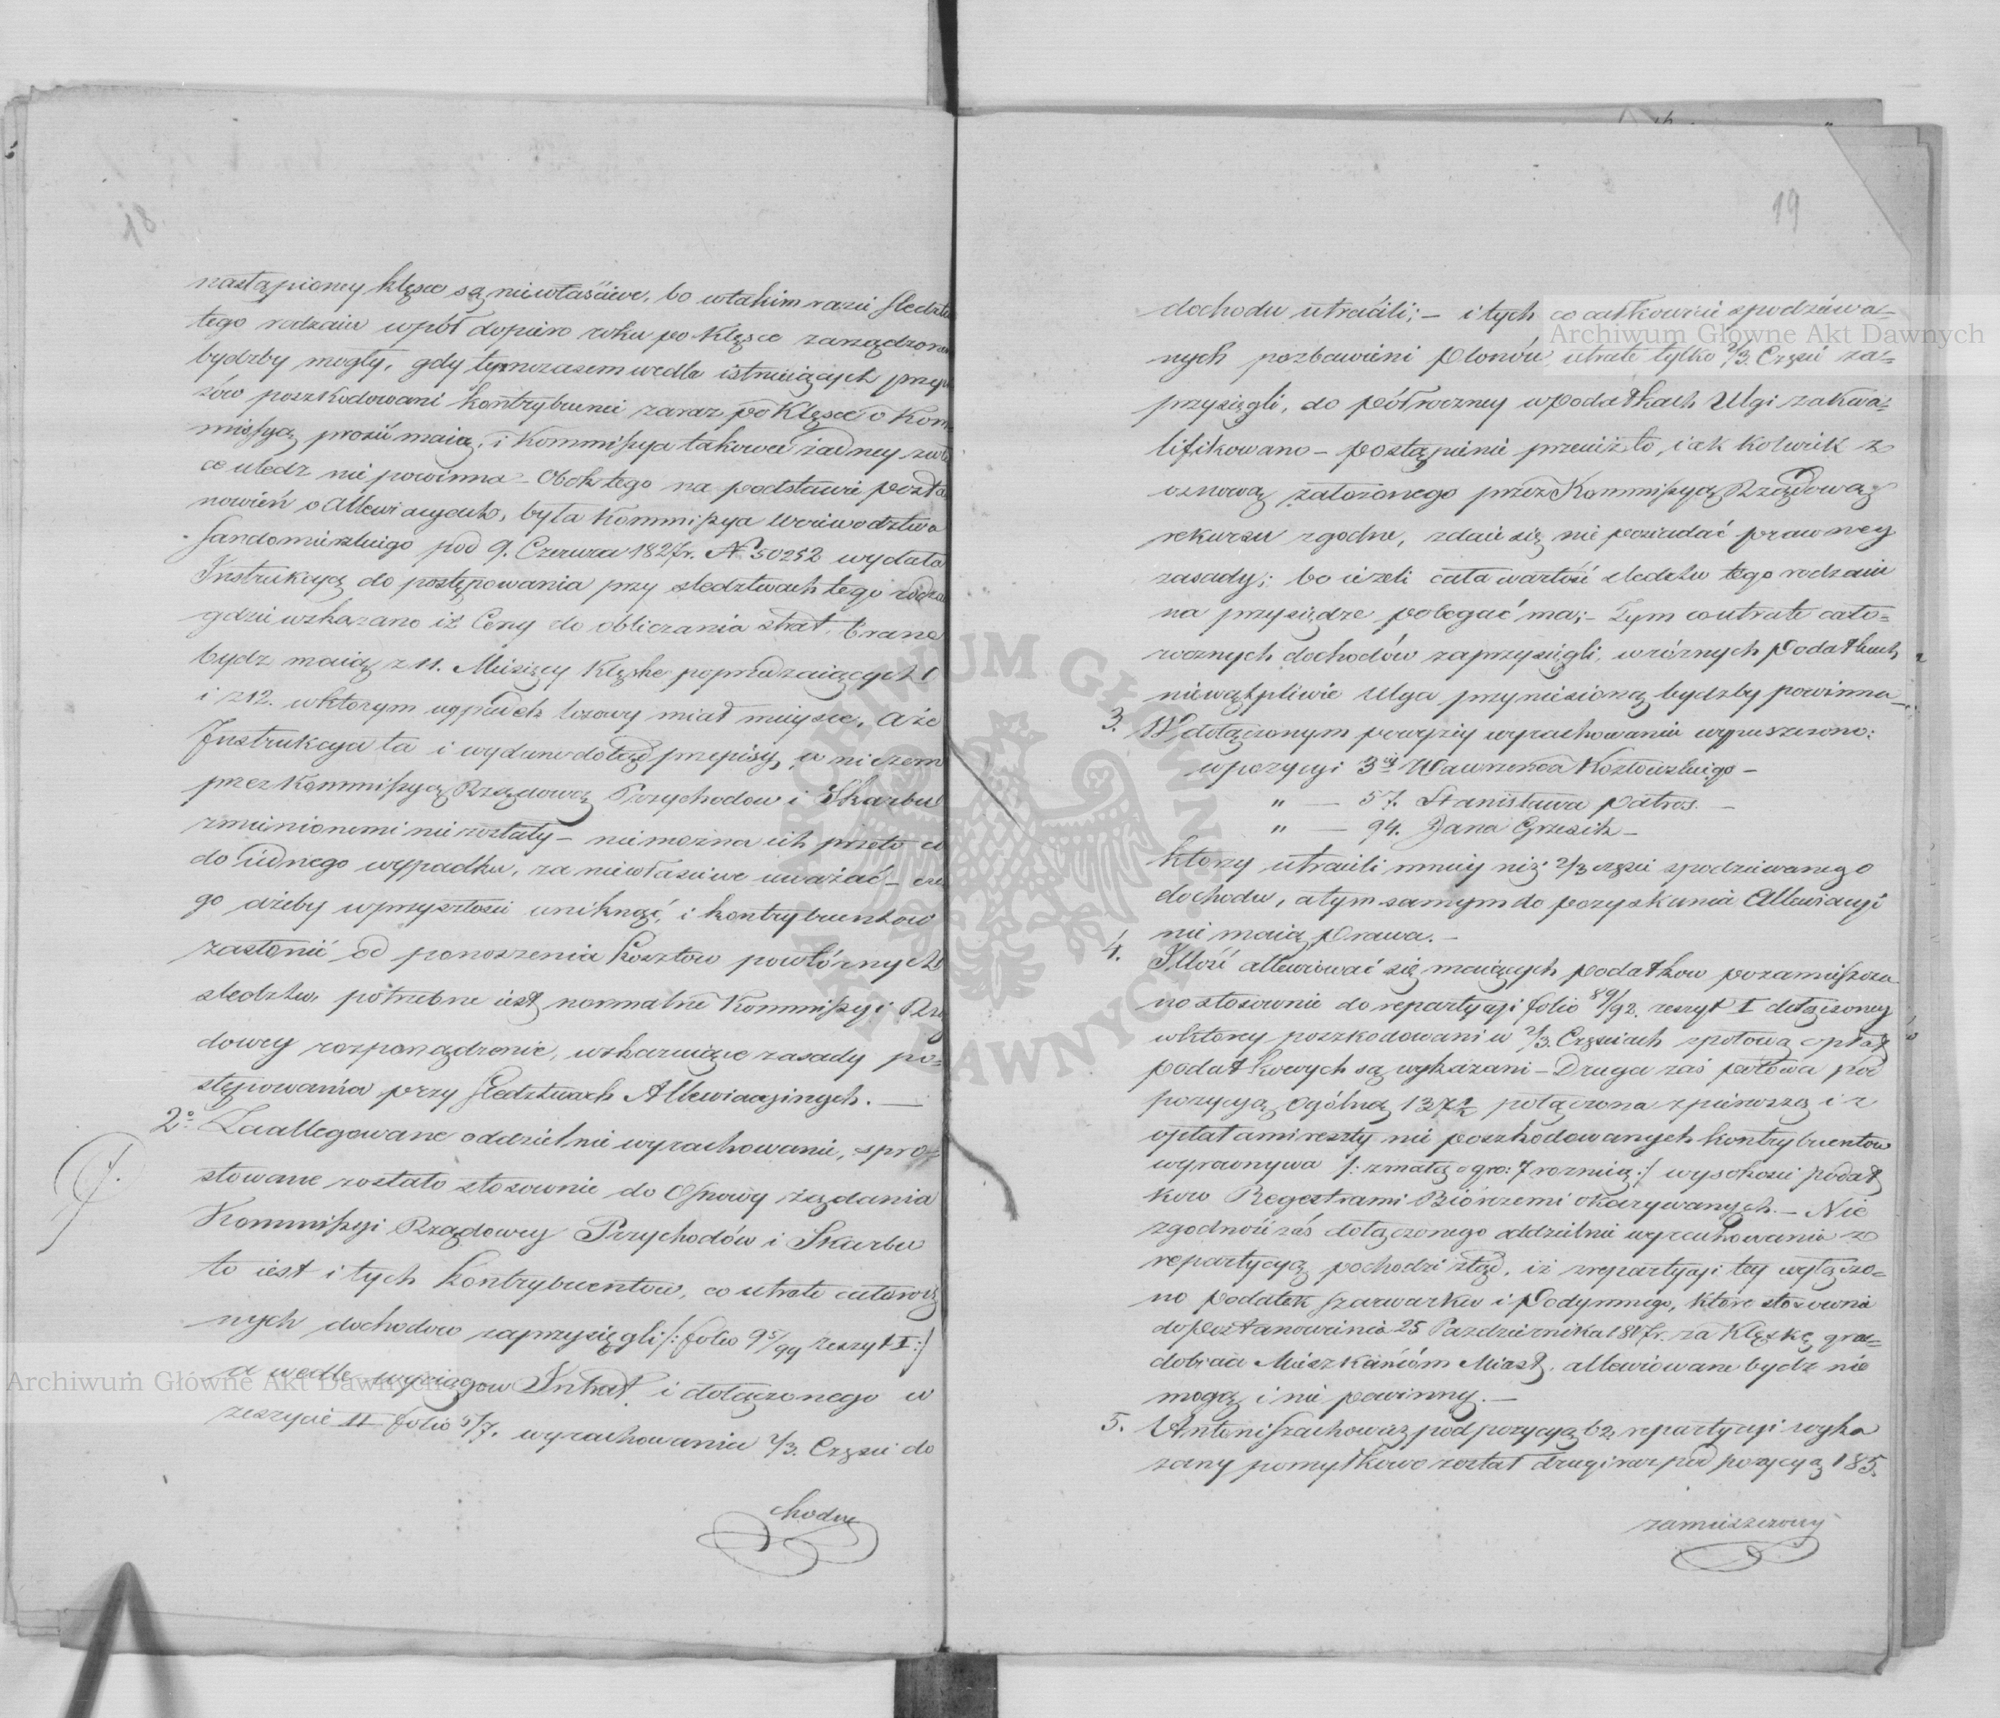 19
nastąpioney klęsce są niewłaściwe, bo wtakim razie śledztw
tego rodzaiu wpół dopiero roku po Klęsce zarządzone
bydźby mogły, gdy tymczasem wedle istnieiących przepi
sów poszkodowani kontrybuenci zaraz po Klęsce o Kom
missyą prosić maią, i Kommissya takowa żadney zwło
ce uledz nie powinna - Obok tego na podstawie posta
nowień o Allewiacyach, była Kommissya Woiewodztwa
Sandomierskiego pod 9. Czerwca 1827 r. N 50252 wydała
Instrukcyą do postępowania przy śledztwach tego rodza
gdzie wskazano iż Ceny do obliczania strat, brane
bydz maią z 11. Miesięcy Klęskę poprzedzaiących
i z 12. wktorym wypadek losowy miał mieysce, a że
Instrukcya ta i wydane dotąd przepisy, w niczem
przez Kommissyą Rządową Przychodow i Skarbu
zmienionemi nie zostały - nie można ich przeto co
do iednego wypadku, za niewłasciwe uważać - cze
go ażeby wprzyszłosci uniknąć, i kontrybuentow
zasłonić od ponoszenia kosztow powtórnych
sledztw, potrzebne iest normalne Kommissyi Rzą
dowey rozporządzenie, wskazuiące zasady po=
stępowania przy śledztwach Allewiacyinych. —
2° Zaallegowane oddzielnie wyrachowanie, spro=
stowane zostało stosownie do Osnowy żądania
Kommissyi Rządowey Przychodów i Skarbu
to iest i tych kontrybuentow, co utratę całorocz
nych dochodow zaprzysięgli /: folio 95/99 zeszyt I :/
a wedle wyciągow Intrat i dołączonego w
zeszycie II folio 5/7. wyrachowania 2/3. Części do
chodu
dochodu utracili; - i tych co całkowicie spodziewa=
nych pozbawieni Plonów, utratę tylko 2/3. Części za=
przysięgli, do półroczney wPodatkach Ulgi zakwa=
lifikowano - postąpienie przeciež to, iak kolwiek z
osnową założonego przez Kommissyą Rządową
rekursu zgodne, zdaie się nie posiadać prawney
zasady; bo ieżeli cała wartość sledztw tego rodzaiu
na przysiędze polegać ma; - Tym co utratę cało=
rocznych dochodów zaprzysięgli, w różnych Podatkach
niewątpliwie Ulga przyniesioną bydźby powinna -
3. W dołączonym powyżey wyrachowaniu wypuszczono:
wpozycyi 3ey Wawrzeńca Kozłowskiego -
" — 57. Stanisława Patros. -
" — 94. Jana Grzesik -
ktorzy utracili mniey niż 2/3 części spodziewanego
dochodu, a tym samym do pozyskania Allewiacyi
nie maią Prawa. -
4. Ilość allewiować się maiących podatkow pozamieszcza
no stosownie do repartycyi folio 89/92. zeszyt I dołączoney
wktorey poszkodowani w 2/3. Częściach z połową opłat
podatkowych są wykazani - Druga zaś połowa pod
pozycyą ogólną 137½ połączona z pierwszą i z
opłatami reszty nie poszkodowanych kontrybuentow
wyrownywa /: z małą o gro: 7 roznicą :/ wysokosci podat
kow Regestrami Biórczemi okazywanych. - Nie
zgodność zaś dołączonego oddzielnie wyrachowania z
repartycyą pochodzi ztąd, iż zrepartycyi tey wyłączo=
no podatek szarwarku i Podymnego, które stosownie
do Postanowienia 25 Pazdziernika 1817 r. za Klęskę gra=
dobicia Mieszkańcom Miast, allewiowane bydź nie
mogą i nie powinny. -
5. Antoni Szachowicz pod pozycyą 62, repartycyi wyka
zany pomyłkowo został drugi raz pod pozycyą 185.
zamieszczony
Archiwum Główne Akt Dawnych
Archiwum Główne Akt Dawnych
ARCHIWUM GŁÓWNE AKT DAWNYCH